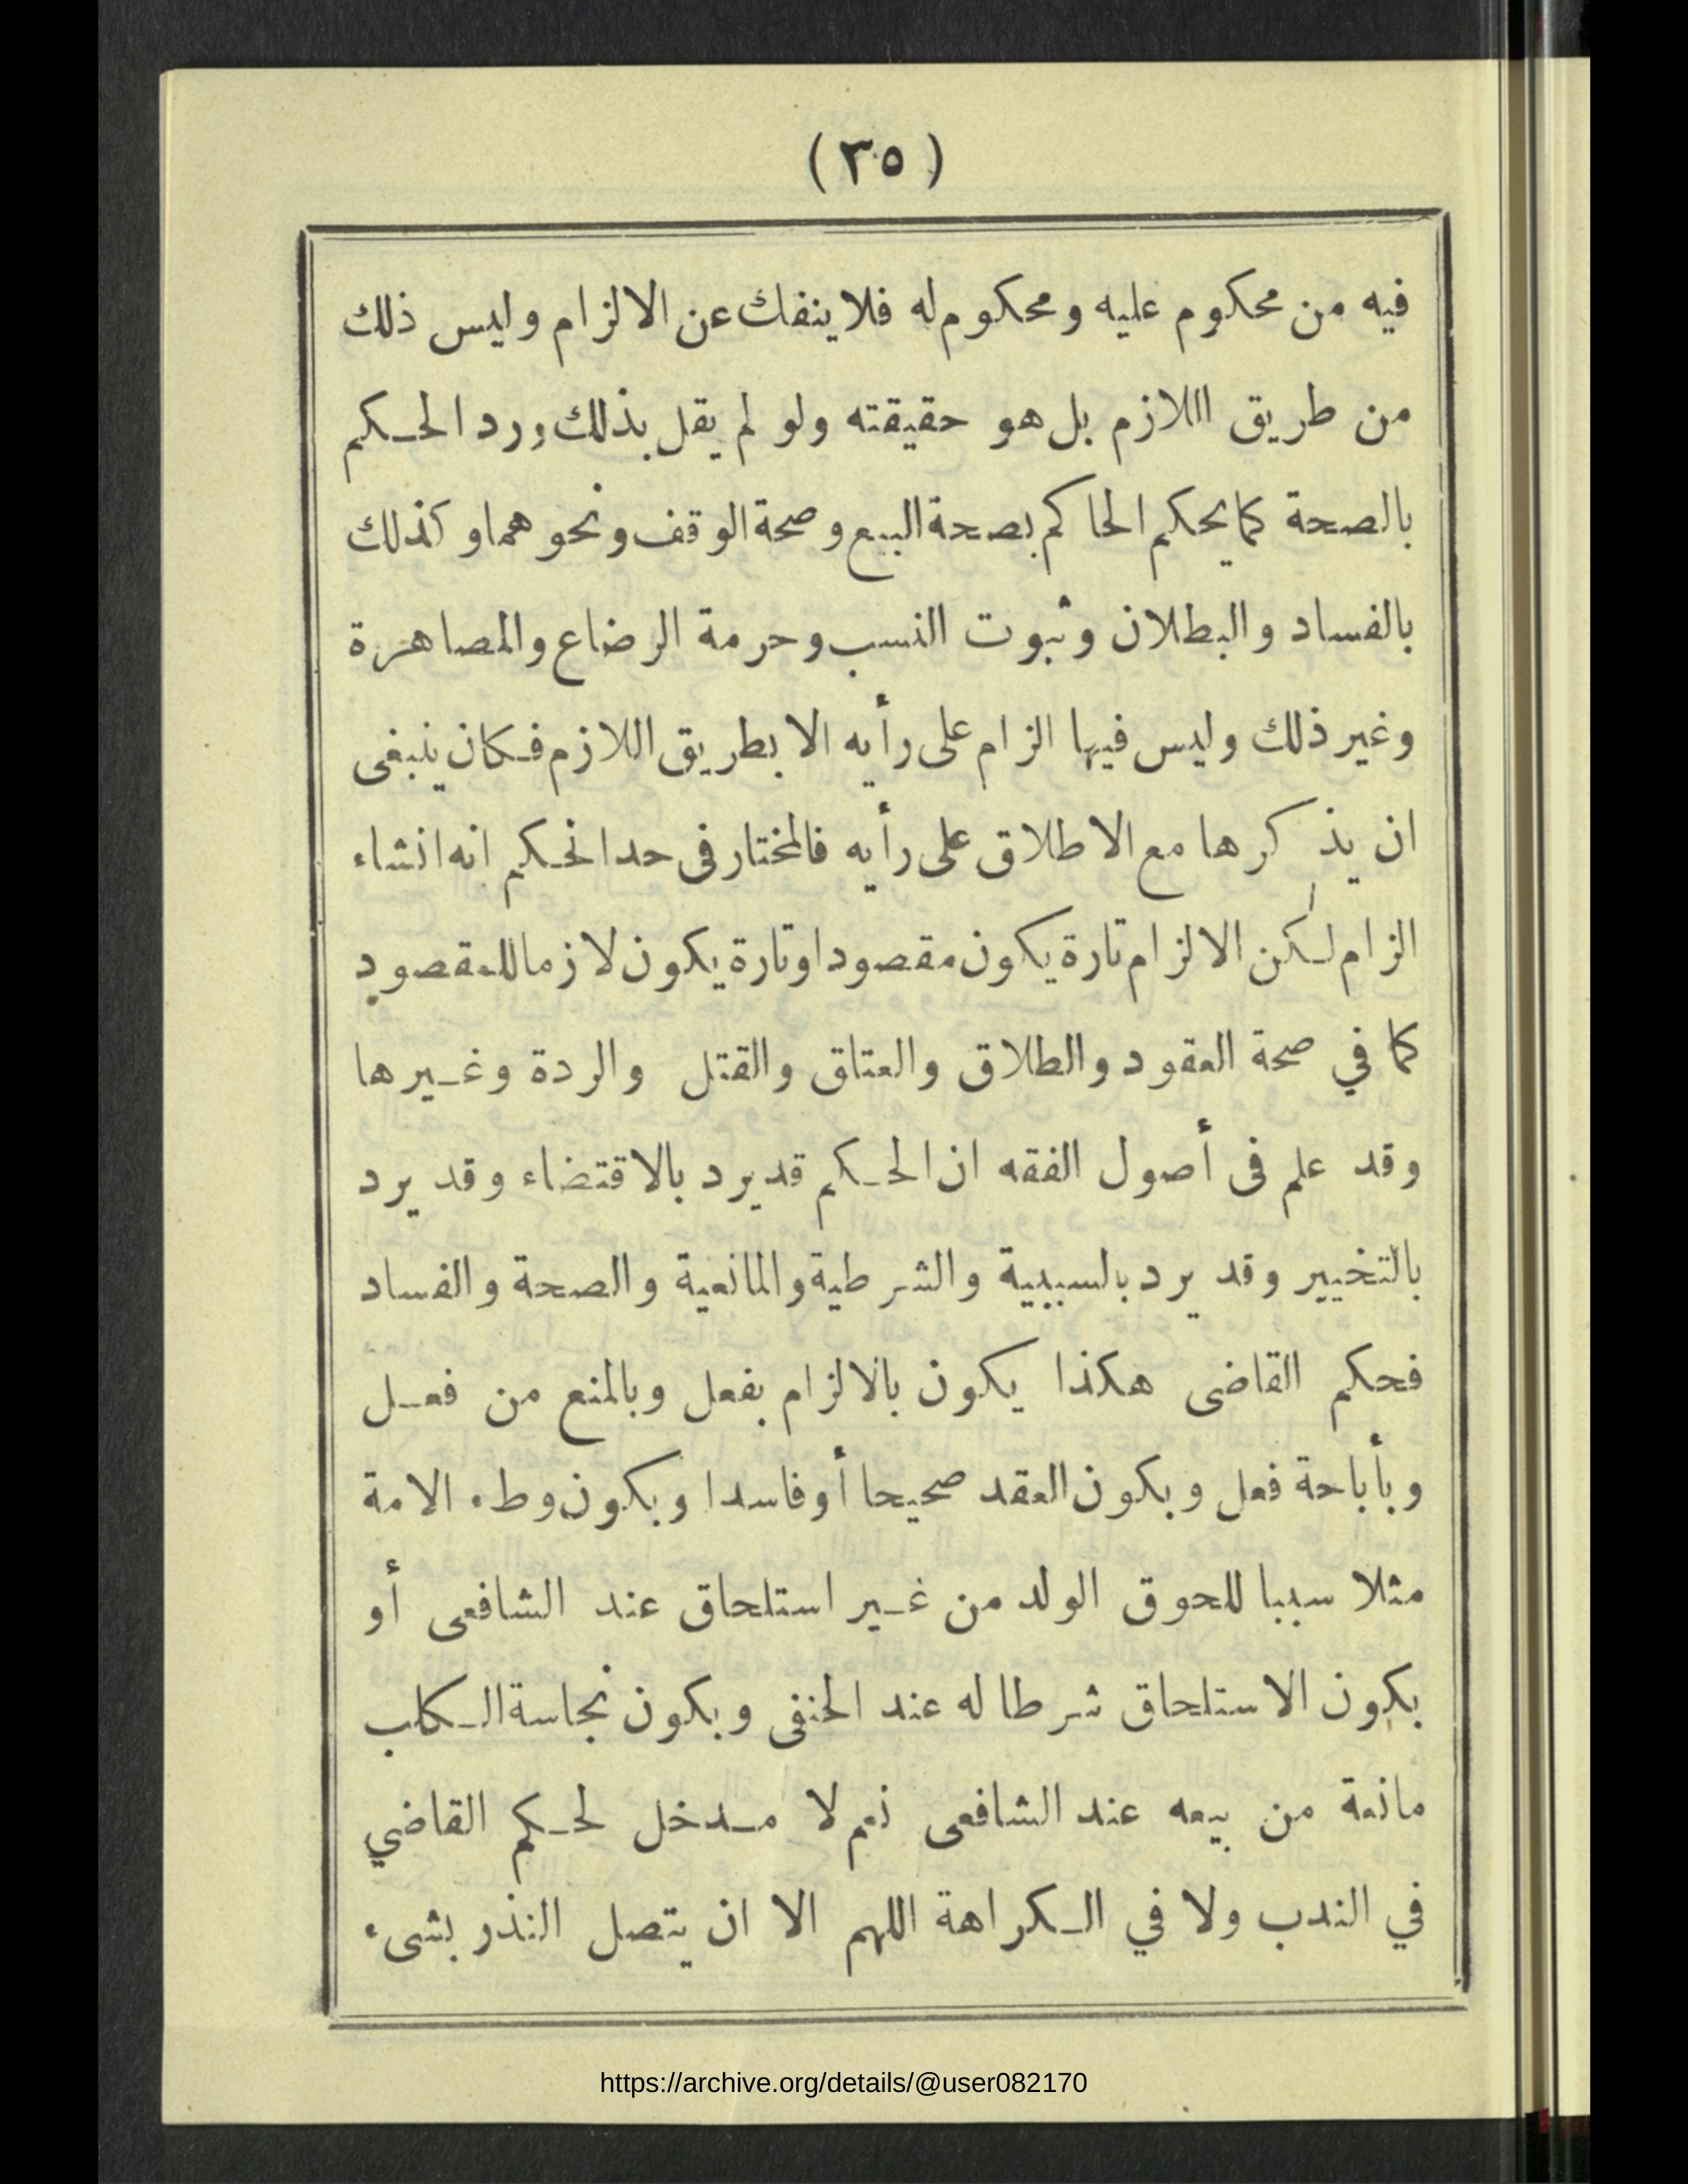 (٣٥)
فيه من محكوم عليه ومحكوم له فلا ينفك عن الالزام وليس ذلك
من طريق االلازم بل هو حقيقته ولو لم يقل بذلك ورد الحكم
بالصحة كما يحكم الحاكم بصحة البيع وصحة الوقف ونحوهما وكذلك
بالفساد والبطلان وثبوت النسب وحرمة الرضاع والمصاهرة
وغير ذلك وليس فيها الزام على رأيه الا بطريق اللازم فكان ينبغى
ان يذكرها مع الاطلاق على رأيه فالمختار فى حد الحكم انه انشاء
الزام لكن الالزام تارة يكون مقصودا وتارة يكون لازما للمقصود
كما في صحة العقود والطلاق والعتاق والقتل والردة وغيرها
وقد علم فى أصول الفقه ان الحكم قد يرد بالاقتضاء وقد يرد
بالتخيير وقد يرد بالسببية والشرطية والمانعية والصحة والفساد
فحكم القاضى هكذا يكون بالالزام بفعل وبالمنع من فعل
وبأباحة فعل وبكون العقد صحيحا أو فاسدا وبكون وطء الامة
مثلا سببا للحوق الولد من غير استلحاق عند الشافعى أو
بكون الاستلحاق شرطا له عند الحنفى وبكون نجاسة الكلب
مانعة من بيعه عند الشافعى نعم لا مدخل لحكم القاضي
في الندب ولا في الكراهة اللهم الا ان يتصل النذر بشىء
https://archive.org/details/@user082170